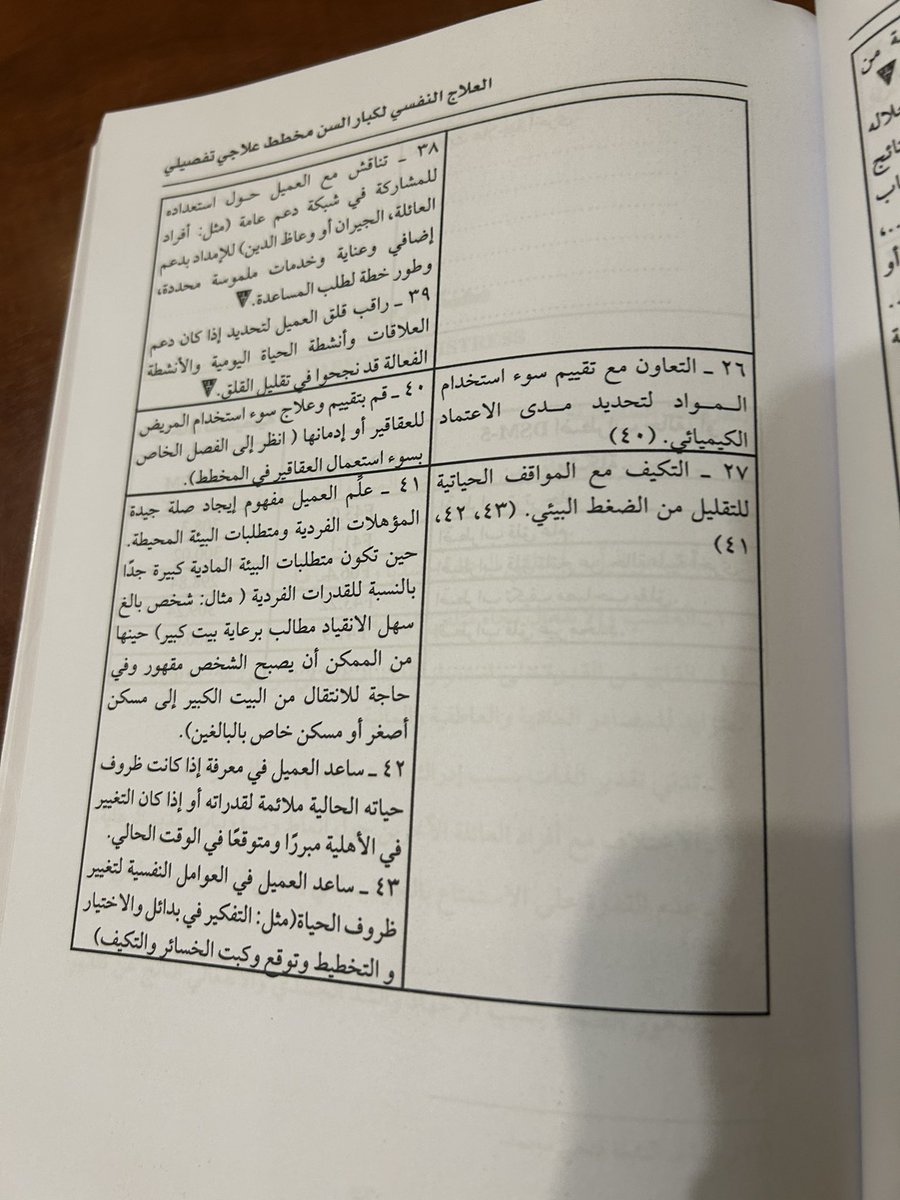 العلاج النفسي لكبار السن مخطط علاجي تفصيلي
٣٨ ـ تناقش مع العميل حول استعداده
للمشاركة في شبكة دعم عامة (مثل: أفراد
العائلة، الجيران أو وعاظ الدين) للإمداد بدعم
إضافي وعناية وخدمات ملموسة محددة،
وطور خطة لطلب المساعدة.
٣٩ ـ راقب قلق العميل لتحديد إذا كان دعم
العلاقات وأنشطة الحياة اليومية والأنشطة
الفعالة قد نجحوا في تقليل القلق.
٢٦ ـ التعاون مع تقييم سوء استخدام
المـــواد لتحديد مــدى الاعتماد
الكيميائي. (٤٠)
٤٠ ـ قم بتقييم وعلاج سوء استخدام المريض
للعقاقير أو إدمانها ( انظر إلى الفصل الخاص
بسوء استعمال العقاقير في المخطط).
٢٧ ـ التكيف مع المواقف الحياتية
للتقليل من الضغط البيئي. (٤٣، ٤٢،
٤١)
٤١ ـ علِّم العميل مفهوم إيجاد صلة جيدة
المؤهلات الفردية ومتطلبات البيئة المحيطة.
حين تكون متطلبات البيئة المادية كبيرة جدًا
بالنسبة للقدرات الفردية ( مثال: شخص بالغ
سهل الانقياد مطالب برعاية بيت كبير) حينها
من الممكن أن يصبح الشخص مقهور وفي
حاجة للانتقال من البيت الكبير إلى مسكن
أصغر أو مسكن خاص بالبالغين).
٤٢ ـ ساعد العميل في معرفة إذا كانت ظروف
حياته الحالية ملائمة لقدراته أو إذا كان التغيير
في الأهلية مبررًا ومتوقعًا في الوقت الحالي.
٤٣ ـ ساعد العميل في العوامل النفسية لتغيير
ظروف الحياة(مثل: التفكير في بدائل والاختيار
و التخطيط وتوقع وكبت الخسائر والتكيف)